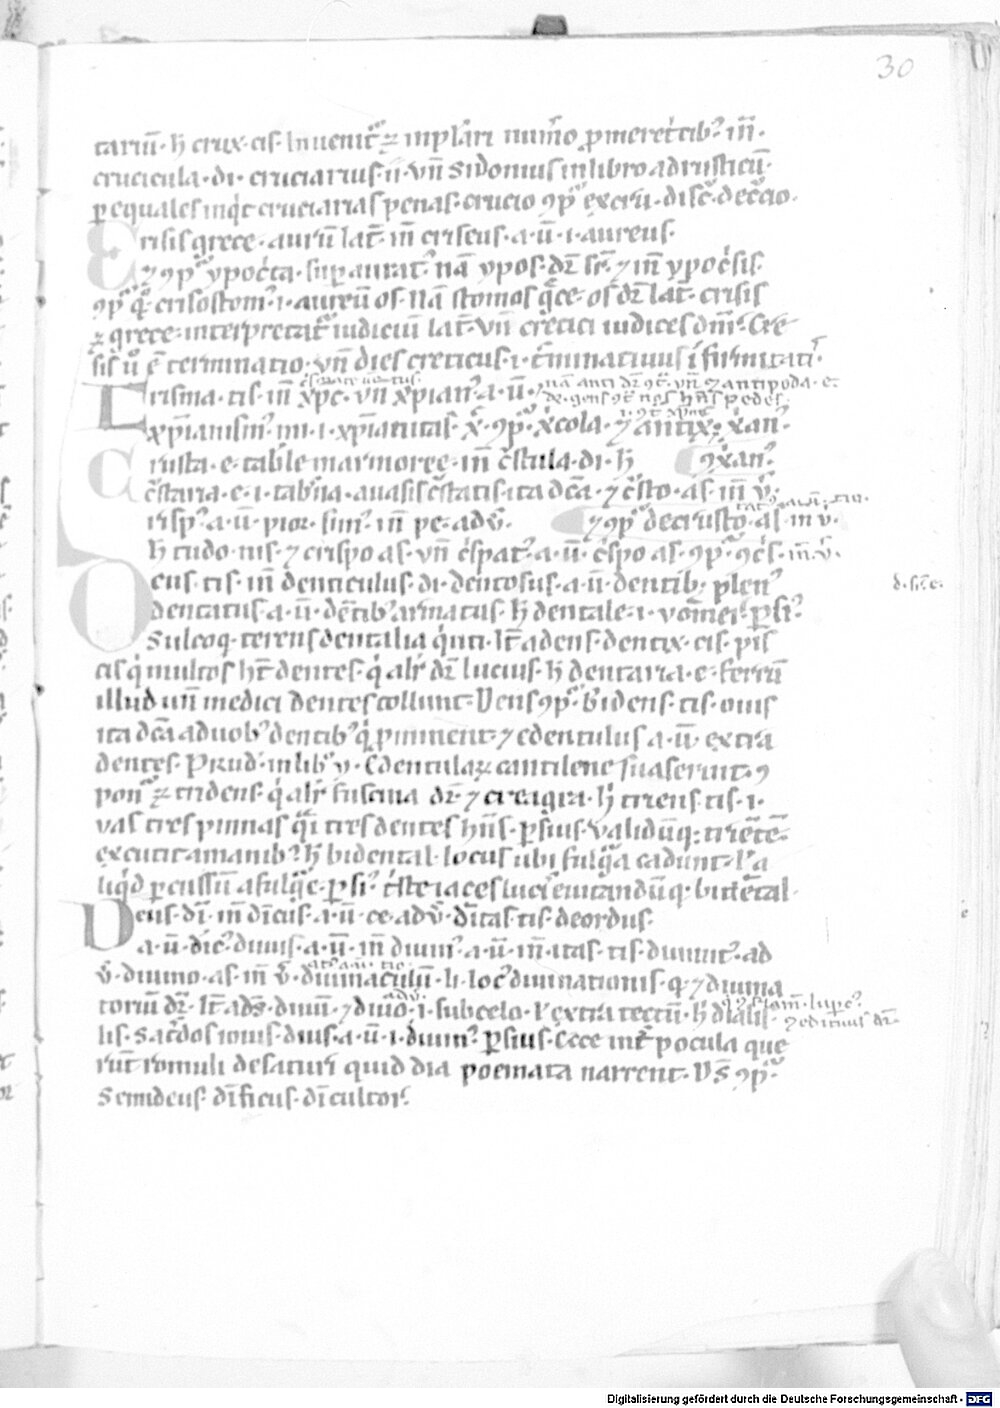 30
tariū· h̄ crux·cis· Inuenit᷑ ⁊ inpl᷑ari num̄o p̄merētib᷒ in̄·
crucicula·di· cruciarius·ii·vn̄ Sidonius in libro ad rusticū·
ꝑ equales inq̇t cruciarias penas·crucio ꝯp᷑ excru·disc᷑·dec᷑cio·
Crisis grece·aurū lat̄· in̄ criseus·a·ū·i·aureus·
⁊ ꝯp᷑ ypoc̓ta·suꝑaurat᷒ nā ypos·dr̄ sr̄· ⁊ in̄ ypoc̓sis·
ꝯp᷑ q̄· crisostom᷒·i·aureū os· Nā stomos g̓ce·os dr̄ lat̄· crisis
⁊ grece·interpretat᷑ iudiciū lat̄· vn̄ cretici iudices dn̄r᷑· Cre
sis ū ē terminatio·vn̄ dies creticus·i·t̓minatiuus ī firmitati᷒·
Crisma·tis·in̄ xp̄c·vn̄ xp̄ian᷒·a·ū·
nā anti dr̄ ꝯt᷑·vn̄ ⁊ antipoda·e·
xp̄ianism᷒·mi·i·xp̄ianitas·x̄·ꝯp᷑·x̄cola· ⁊ antix̄· x̄an᷒·
Crusta·e·table marmoree·in̄ c̓stula·di·h̄ ꝯx̄an᷒·
c̓staria·e·i·tab̓na·auasis c̓statis·ita dc̄a· ⁊ c̓sto·as·in̄ v̄·
Crisp᷒·a·ū·pior·sim᷒·in̄ pe·adv̄· ⁊ ꝯp᷑ decrusto·as·in v̄·
h̄ tudo·nis· ⁊ crispo as·vn̄ c̓spat᷒·a·ū·c̓spo as·ꝯp᷑·ꝯc̓s·in̄·v̄·
Dens·tis·in̄ denticulus·di·dentosus·a·ū·dentib; plen᷒
d·sr̄e·
dentatus·a·ū·dētib᷒ armatus·h̄ dentale·i·vom̄er᷑·ꝑsi᷒·
Sulcoq·terens dentalia q̇nti·It̄ adens·dentix·cis·pis
cis q̇ multos ht̄ dentes·q̇ alr̄ dr̄ lucius·h̄ dentaria·e·ferrū
illud un̄ medici dentes tollunt·Dens ꝯp᷑·bidens·tis·ouis
ita dc̄a aduob᷒ dentib᷒ q̇ p̄minent· ⁊ edentulus a·ū·extra
dentes·Prud᷑·in lib᷒ v·Edentulaꝝ cantilene suaserunt·ꝯ
pon᷑ ⁊ tridens·q̇ alr̄ fuscina dr̄· ⁊ creagra·h̄ triens·tis·i·
vas tres pinnas q̄i tres dentes hn̄s·ꝑsius·Validūq; triētē
excutit amanib᷒ h̄ bidental·locus ubi fulg᷑a cadunt·l᷑a
liq̇d ꝑcussū afulg᷑e·ꝑsi᷒ t̓ste iaces lucis euitandūq; bidēntal·
Deus·dī·in̄ dīcus·a·ū·ce·adv̄·dītas·tis·deordus·
a·ū·dic᷒ diuus·a·ū·in̄ diuin᷒·a·ū·in̄·itas·tis·diuinit᷒·ad
v̄·diuino·as·in̄ v̄·diuinaculū·li·loc᷒ diuinationis·q̄· ⁊ diuina
toriū dr̄·It̄ ads̄·diuū· ⁊ diuio·i·subcelo·l᷑ extra tectū·h̄ dialis·
⁊ edituus dr̄·
lis·Sac̓dos iouis·dius·a·ū·i·diuin᷒·ꝑsius·Ecce int̓ pocula que
runt romuli de saturi quid dia poemata narrent·Ds̄ ꝯp᷑·
Semideus·dīficus·dīcultor᷑·
Digitalisierung gefördert durch die Deutsche Forschungsgemeinschaft - DFG